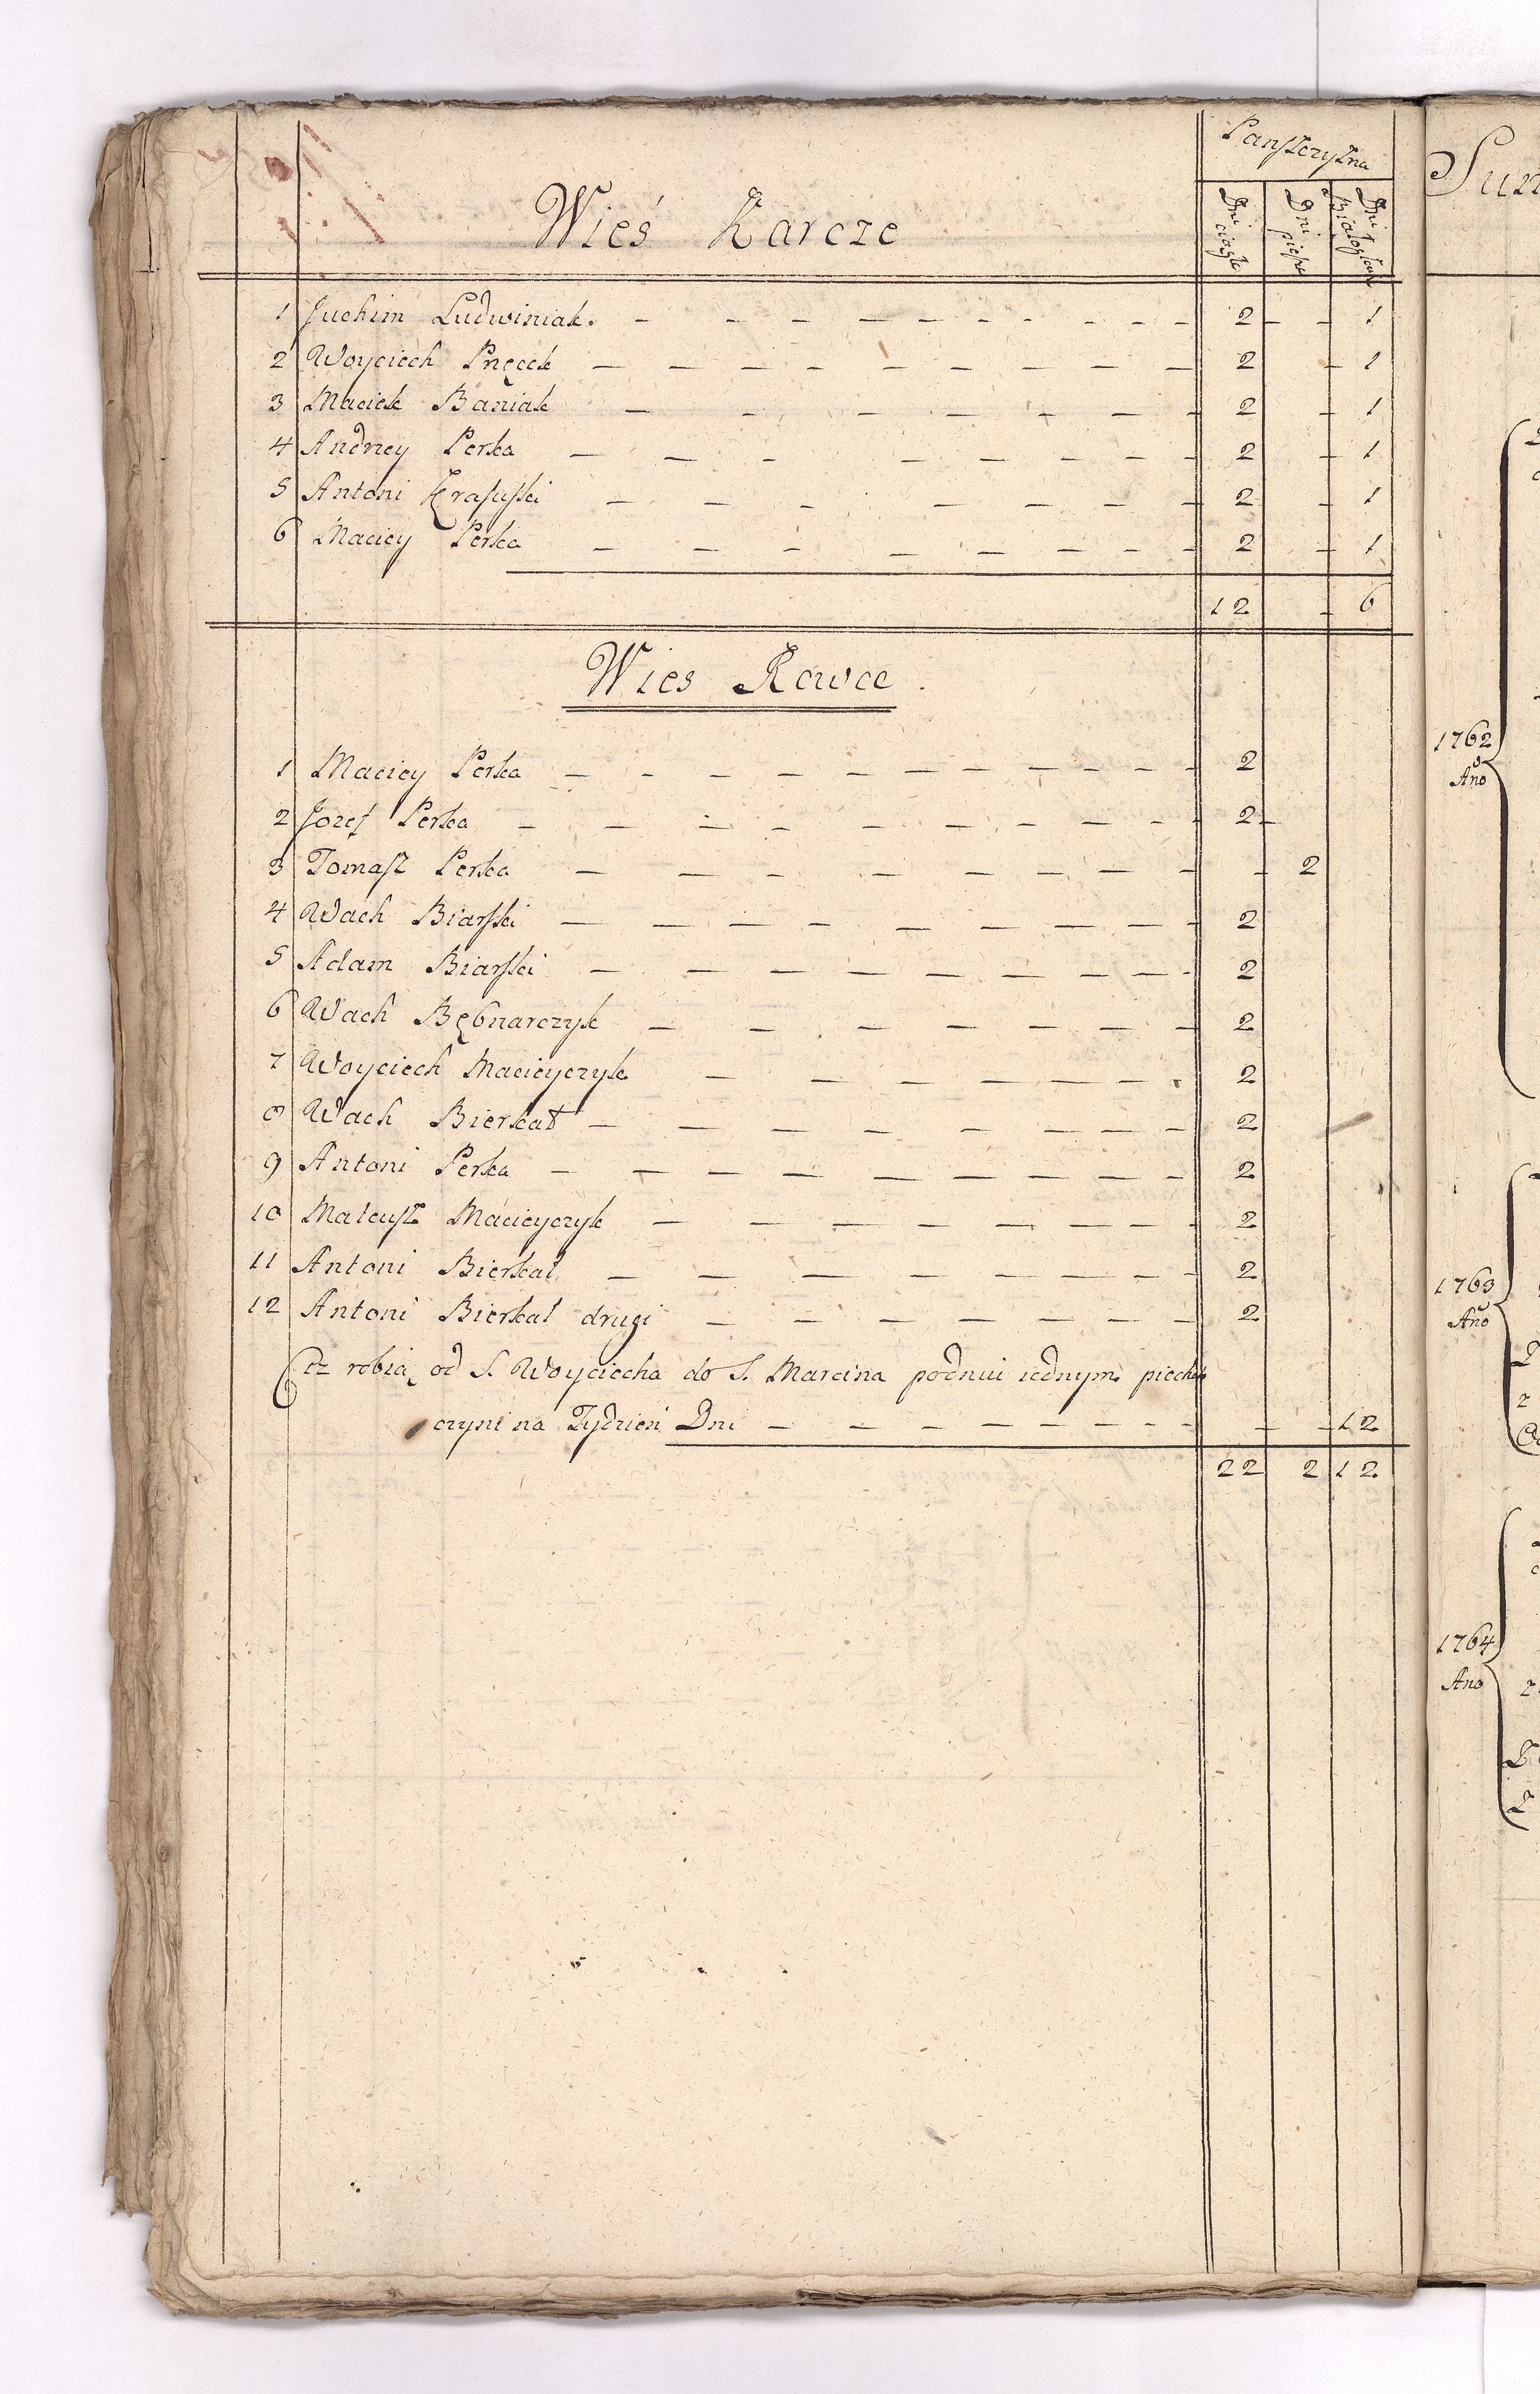 Panszczyzna
Wieś Karcze
Dni ciągłe
Dni piesze
Dni Białogłow
1 Juchim Ludwiniak. 2 1
2 Woyciech Pnęcek 2 1
3 Maciek Baniak 2 1
4 Andrzey Perka 2 1
5 Antoni 2 1
6 Maciey Perka 2 1
12 6
Wies Rowce.
1 Maciey Perka 2
2 Jozef Perka 2
3 Tomasz Perka 2
4 Wach Biarski 2
5 Adam Biarski 2
6 Wach Będnarczyk 2
7 Woyciech Macieyczyk 2
8 Wach Bierkat 2
9 Antoni Perka 2
10 Mateusz Macieyczyk 2
11 Antoni Bierkat 2
12 Antoni Bierkat drugi 2
Ciż robią od S. Woyciecha do S. Marcina podniu iednym piechot
czyni na Tydzień Dni 12
22 2 12
1762
Año
1763
Año
1764
Ano